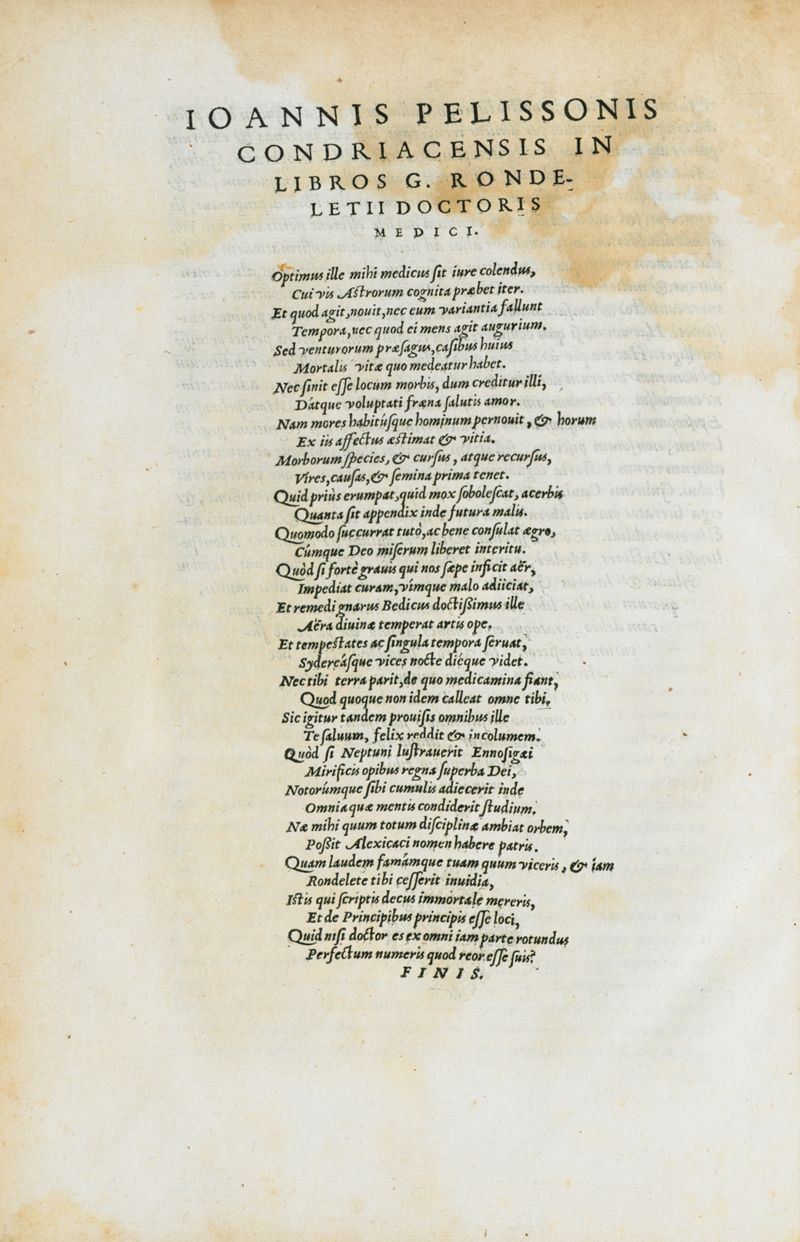 IOANNIS PELISSONIS
CONDRIACENSIS IN
LIBROS G. RONDE-
LETII DOCTORIS
MEDICI.
Optimus ille mihi medicus sit iure colendus,
Cui vis Astrorum cognita præbet iter.
Et quod agit, nouit, nec eum variantia fallunt
Tempora, nec quod ei mens agit augurium.
Sed venturorum præsagus, casibus huius
Mortalis vitæ quo medeatur habet.
Nec sinit esse locum morbis, dum creditur illi,
Dátque voluptati fræna salutis amor.
Nam mores habitúsque hominum pernouit, & horum
Ex iis affectus æstimat & vitia.
Morborum species, & cursus, atque recursus,
Vires, causas, & semina prima tenet.
Quid priùs erumpat, quid mox sobolescat, acerbis
Quanta sit appendix inde futura malis.
Quomodo succurrat tutò, ac bene consulat ægro,
Cúmque Deo miserum liberet interitu.
Quòd si fortè grauis qui nos sæpe inficit aër,
Impediat curam, vímque malo adiiciat,
Et remedi gnarus Bedicus doctissimus ille
Aëra diuinæ temperat artis ope.
Et tempestates ac singula tempora seruat,
Sydereásque vices nocte diéque videt.
Nec tibi terra parit, de quo medicamina fiant,
Quod quoque non idem calleat omne tibi.
Sic igitur tandem prouisis omnibus ille
Te saluum, felix reddit & incolumem.
Quòd si Neptuni lustrauerit Ennosigæi
Mirificis opibus regna superba Dei,
Notorúmque sibi cumulis adiecerit inde
Omnia quæ mentis condiderit studium.
Næ mihi quum totum disciplinæ ambiat orbem,
Possit Alexicaci nomen habere patris.
Quam laudem famámque tuam quum viceris, & iam
Rondelete tibi cesserit inuidia,
Istis qui scriptis decus immortale mereris,
Et de Principibus principis esse loci,
Quid nisi doctor es ex omni iam parte rotundus
Perfectum numeris quod reor esse suis?
FINIS.